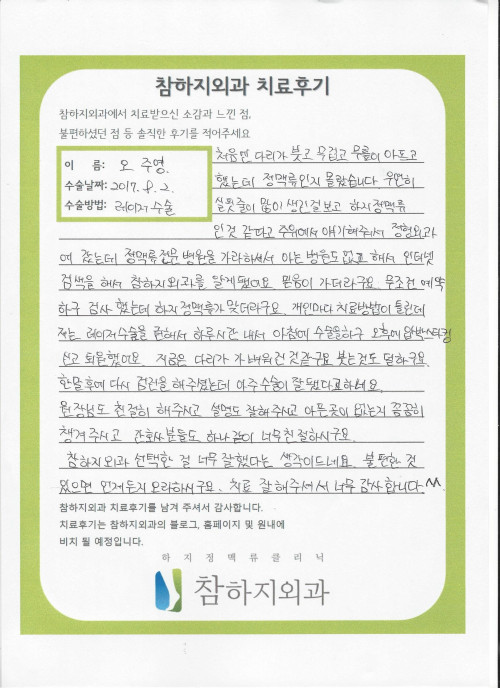 참하지외과 치료후기
참하지외과에서 치료받으신 소감과 느낀 점,
불편하셨던 점 등 솔직한 후기를 적어주세요
이 름: 오 주영.
수술날짜: 2017. 8. 2.
수술방법: 레이저 수술
처음엔 다리가 붓고 무겁고 무릎이 아프고
했는데 정맥류인지 몰랐습니다 우연히
실핏줄이 많이 생긴걸 보고 하지정맥류
인것 같다고 주위에서 얘기해줘서 정형외과
에 갔는데 정맥류전문 병원을 가라하셔서 아는 병원도 없고 해서 인터넷
검색을 해서 참하지외과를 알게됐어요 믿음이 가더라구요 무조건 예약
하구 검사 했는데 하지정맥류가 맞더라구요. 개인마다 치료방법이 틀린데
저는 레이저수술을 권해서 하루시간 내서 아침에 수술을하구 오후에 압박스타킹
신고 퇴원했어요. 지금은 다리가 가벼워진것같구요 붓는것도 덜하구요.
한달후에 다시 검진을 해주셨는데 아주수술이 잘됐다고하네요.
원장님도 친절히 해주시고 설명도 잘해주시고 아픈곳이 없는지 꼼꼼히
챙겨주시고 간호사분들도 하나같이 너무친절하시구요.
참하지외과 선택한 걸 너무 잘했다는 생각이드네요. 불편한 것
있으면 언제든지 오라하시구요. 치료 잘 해주셔서 너무 감사합니다^^.
참하지외과 치료후기를 남겨 주셔서 감사합니다.
치료후기는 참하지외과의 블로그, 홈페이지 및 원내에
비치 될 예정입니다.
하지정맥류클리닉
참하지외과